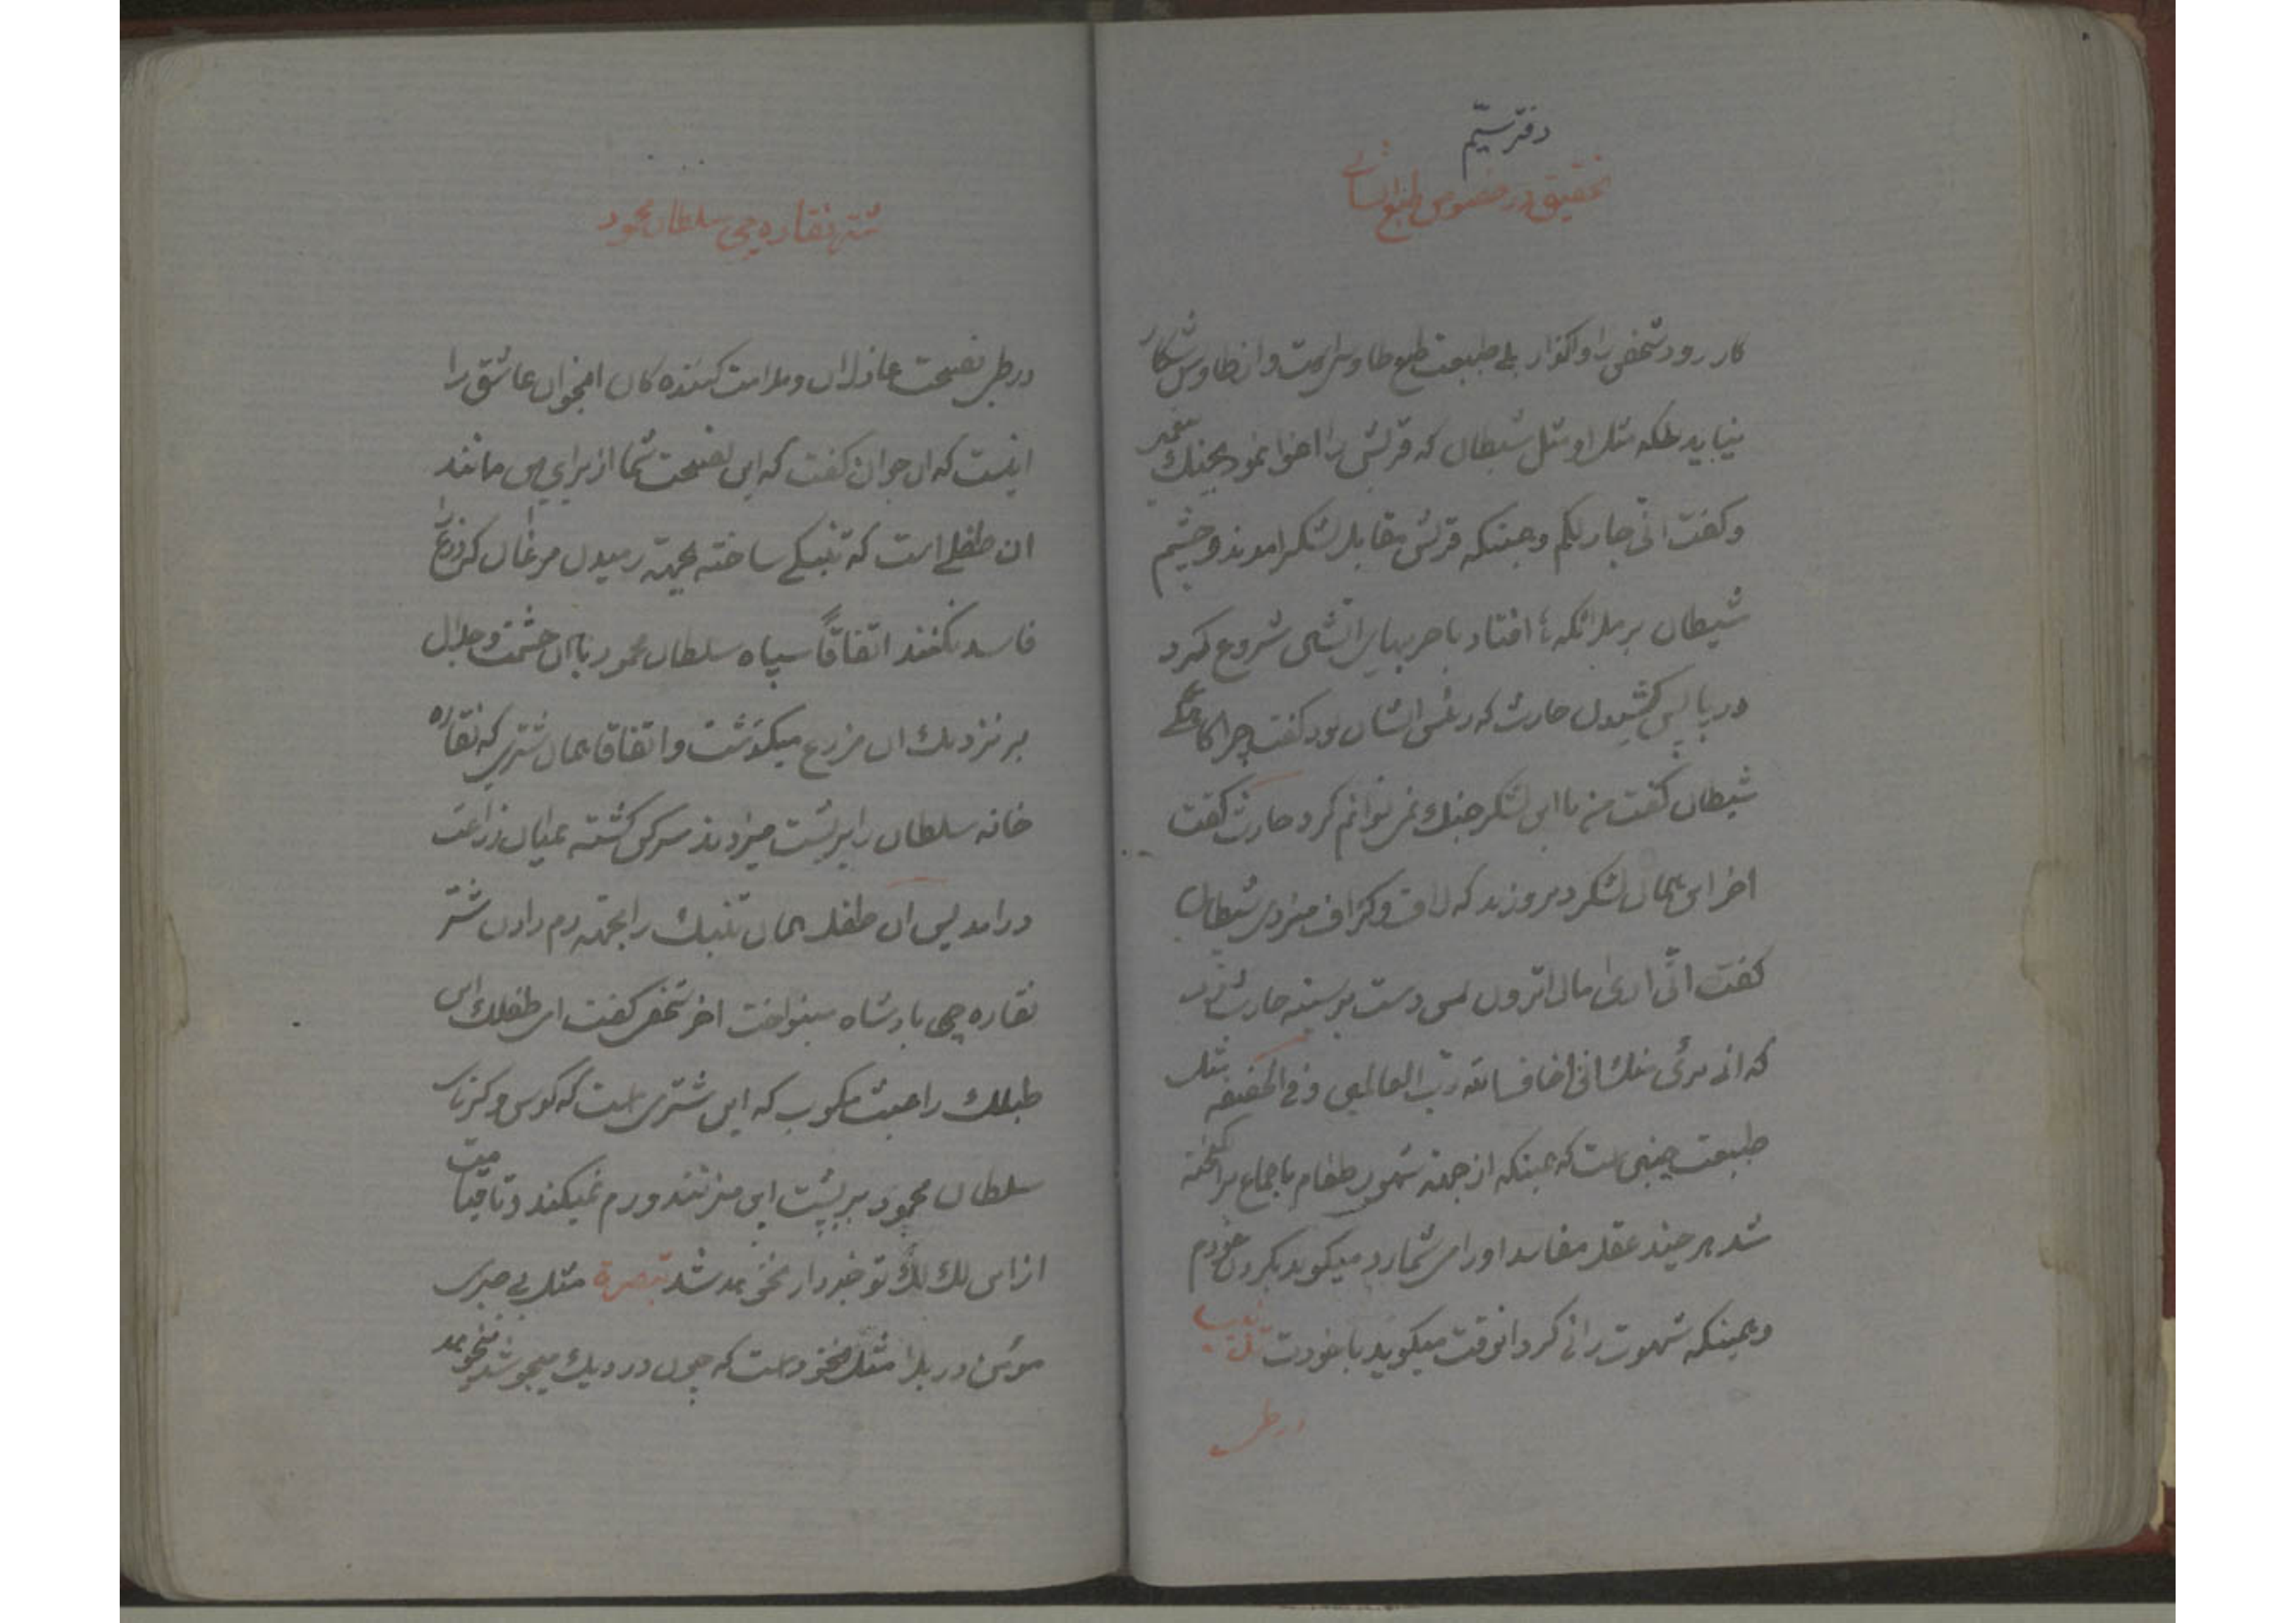 دفتر سیّم
تحقیق در خصوص طبع انسانی
کار رود شخص را واگذار بلی طبیعت طبع طاوس است و از طاوس شکار
نیاید بلکه مثل او مثل شیطان که قریش را اغوا نمود بجنك پیغمبر
و کفت انی جار لکم و همینکه قریش مقابل لشکر امدند و چشم
شیطان بر ملائکه افتاد با حربهای اتشی شروع کرد
در پا پس کشیدن حارث که رئیس ایشان بود کفت چرا
شیطان کفت من با این لشکر جنك نمی توانم کرد حارث کفت
اخر این همان لشکر دیروزند که لاف و کزاف میزدی شیطان
کفت انّی اری مالا ترون پس دست بر سینه حارث زد
که انی بریٔ منك انی اخاف الله ربّ العالمین و فی الحقیقه مثل
طبیعت چنین است که همینکه از جهته شهوت طعام یا جماع برانکیخته
شد هر چند عقل مفاسد او را می شمارد میکوید بکردن خودم
و همینکه شهوت رانی کرد انوقت میکوید با خودت
در طی
تتمه نقاره چی سلطان محمود
در طی نصیحت عاذلان و ملامت کننده کان انجوان عاشق را
اینست که ان جوان کفت که این نصیحت شما از برای من مانند
ان طفلی است که تنبکی ساخته بجهته رمیدن مرغان که زرع را
فاسد نکنند اتفاقاً سپاه سلطان محمود با ان حشمت و جلال
بر نزدیك ان مزرع میکذشت و اتفاقا همان شتری که نقاره
خانه سلطان را بر پشت میزدند سرکش کشته بمیان زراعت
درامد پس ان طفل همان تنبك را بجهته رم دادن شتر
نقاره چی پادشاه مینواخت اخر شخصی کفت ای طفلك این
طبلك را عبث مکوب که این شتری است که کوس و کرنای
سلطان محمود بر پشت این میزنند و رم نمیکند و تا قیامت
از این لك لك تو خبردار نخواهد شد تبصرة مثل بی صبری
مؤمن در بلا مثل نخود است که چون در دیك میجوشد میخواهد